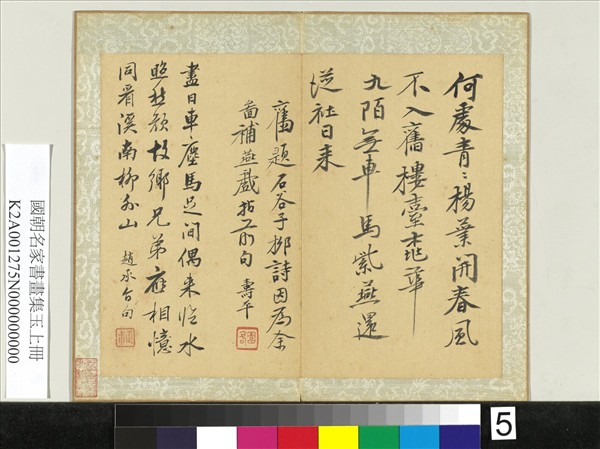 何處青〻楊葉開春風
不入舊樓臺地
九陌無車馬紫燕還
從社日来
舊題石谷子柳詩因爲余
畫補燕戲拈前句 壽平
盡日車塵馬足間偶来临水
照愁顔故鄉兄弟應相憶
同看溪南柳外山 趙承旨句
國朝名家書畫集玉 上冊
K2A001275N000000000
5